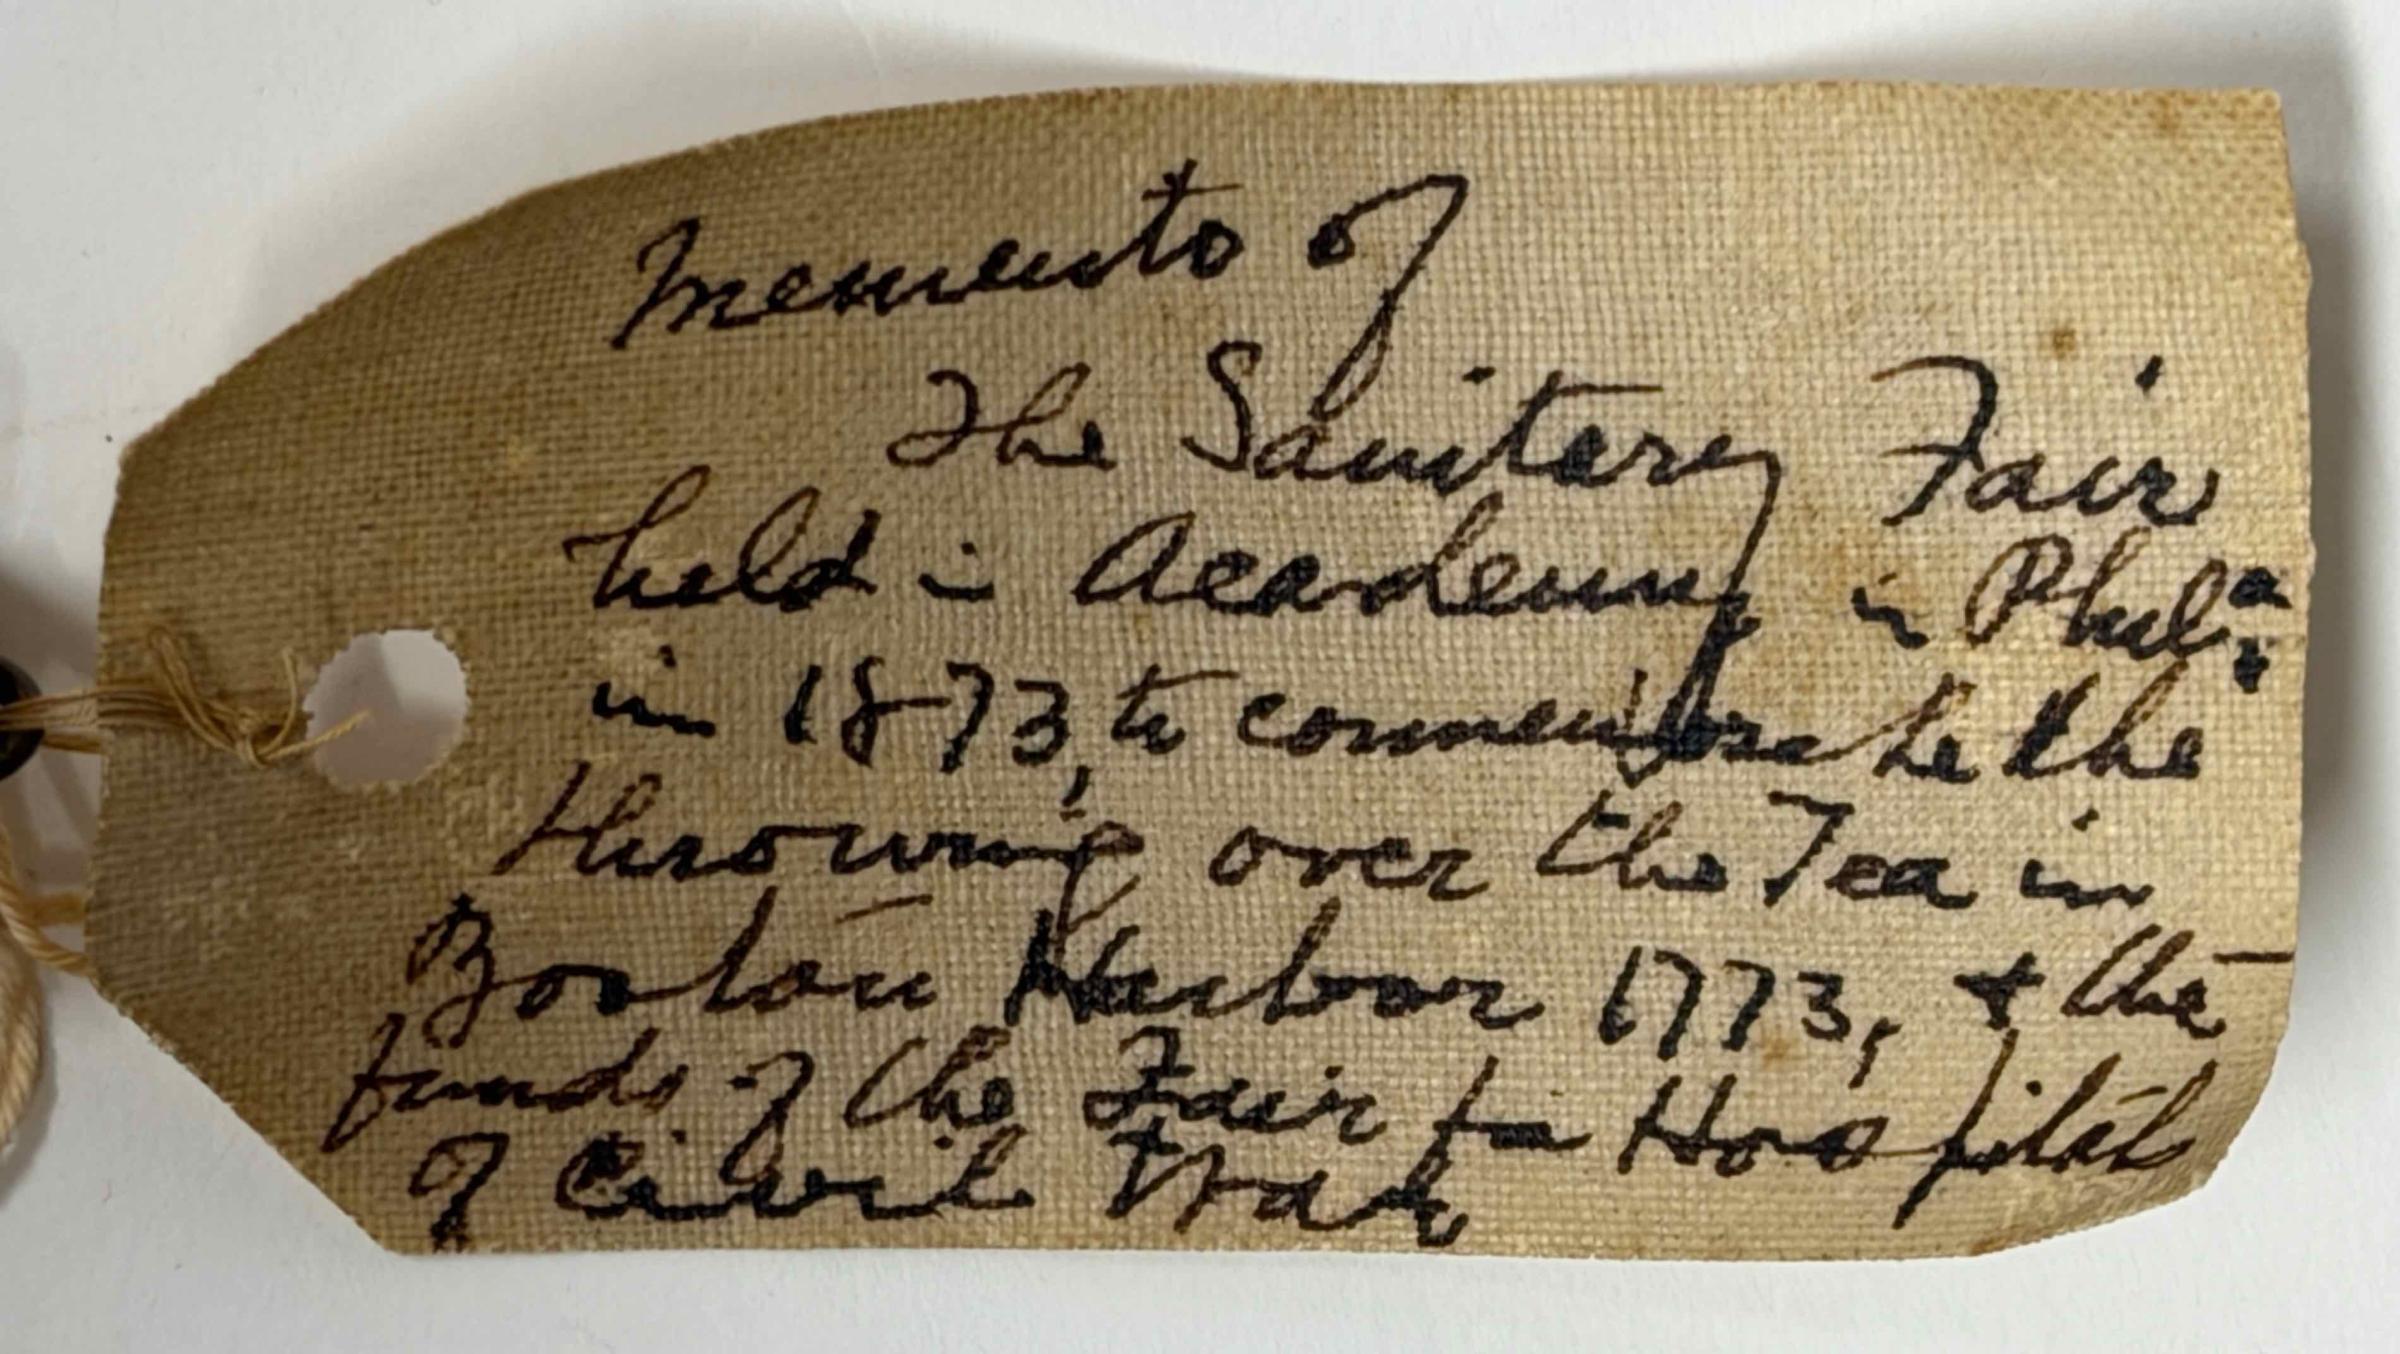 Memento of
The Sanitary Fair
held in Academy in Phila
in 1873, to commemorate the
throwing over the Tea in
Boston Harbor 1773, + the
funds of the Fair for Hospital
of Civil War